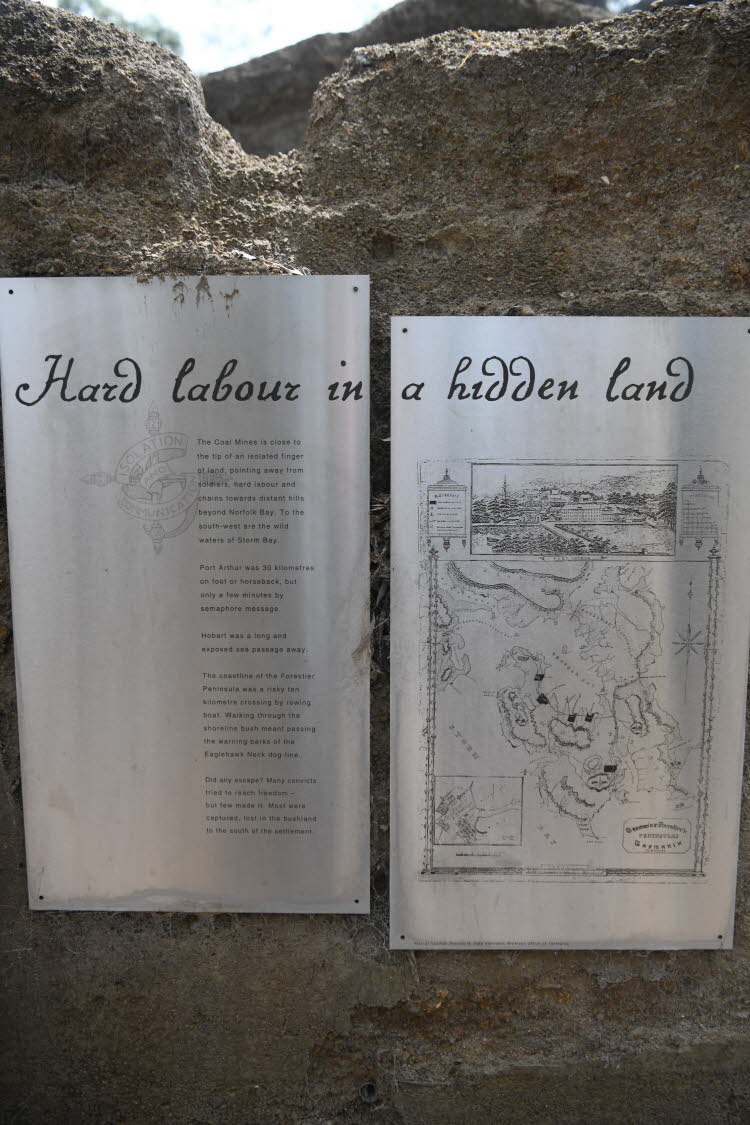 Hard labour in a hidden land
ISOLATION
AND
The Coal Mines is close to
the tip of an isolated finger
of land, pointing away from
soldiers, hard labour and
chains towards distant hills
beyond Norfolk Bay. To the
south-west are the wild
waters of Storm Bay.
Port Arthur was 30 kilometres
on foot or horseback, but
only a few minutes by
semaphore message.
Hobart was a long and
exposed sea passage away.
The coastline of the Forestier
Peninsula was a risky ten
kilometre crossing by rowing
boat. Walking through the
shoreline bush meant passing
the warning barks of the
Eaglehawk Neck dog-line.
Did any escape? Many convicts
tried to reach freedom –
but few made it. Most were
captured, lost in the bushland
to the south of the settlement.
STORM
BAY
PENINSULAS
Tasmania